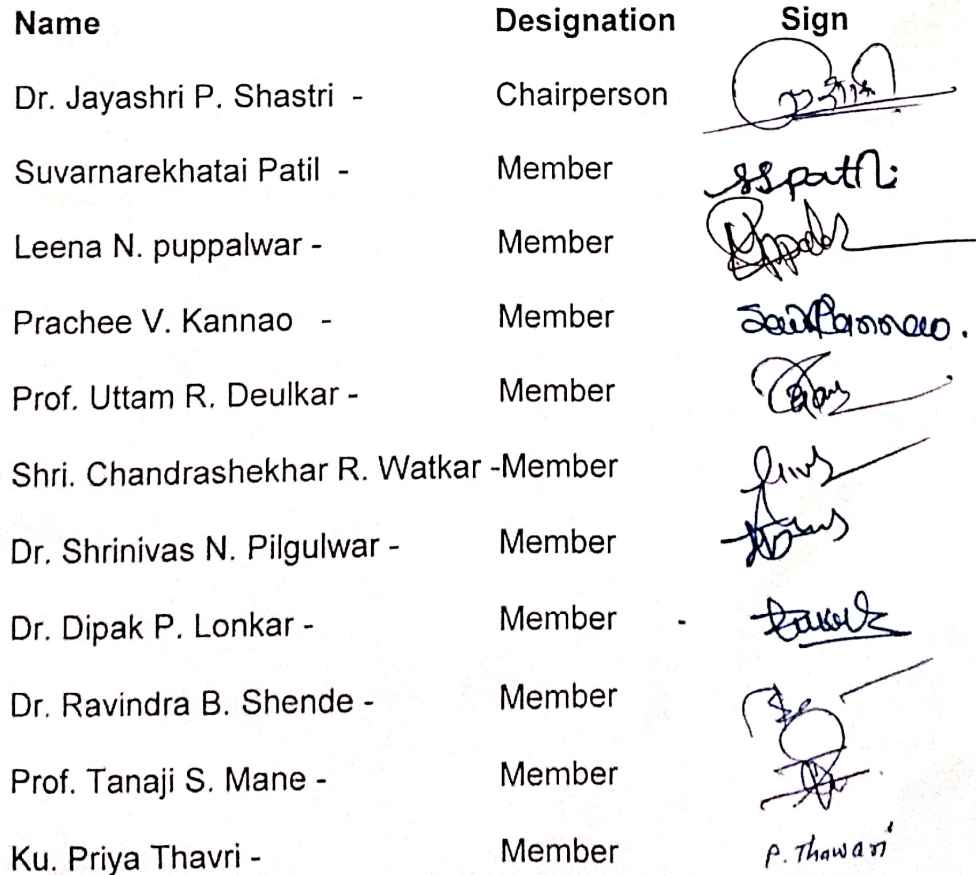 Name Designation Sign
Dr. Jayashri P. Shastri - Chairperson
Suvarnarekhatai Patil - Member sspatil
Leena N. puppalwar - Member
Prachee V. Kannao - Member
Prof. Uttam R. Deulkar - Member
Shri. Chandrashekhar R. Watkar -Member
Dr. Shrinivas N. Pilgulwar - Member
Dr. Dipak P. Lonkar - Member -
Dr. Ravindra B. Shende - Member
Prof. Tanaji S. Mane - Member
Ku. Priya Thavri - Member P. Thawari